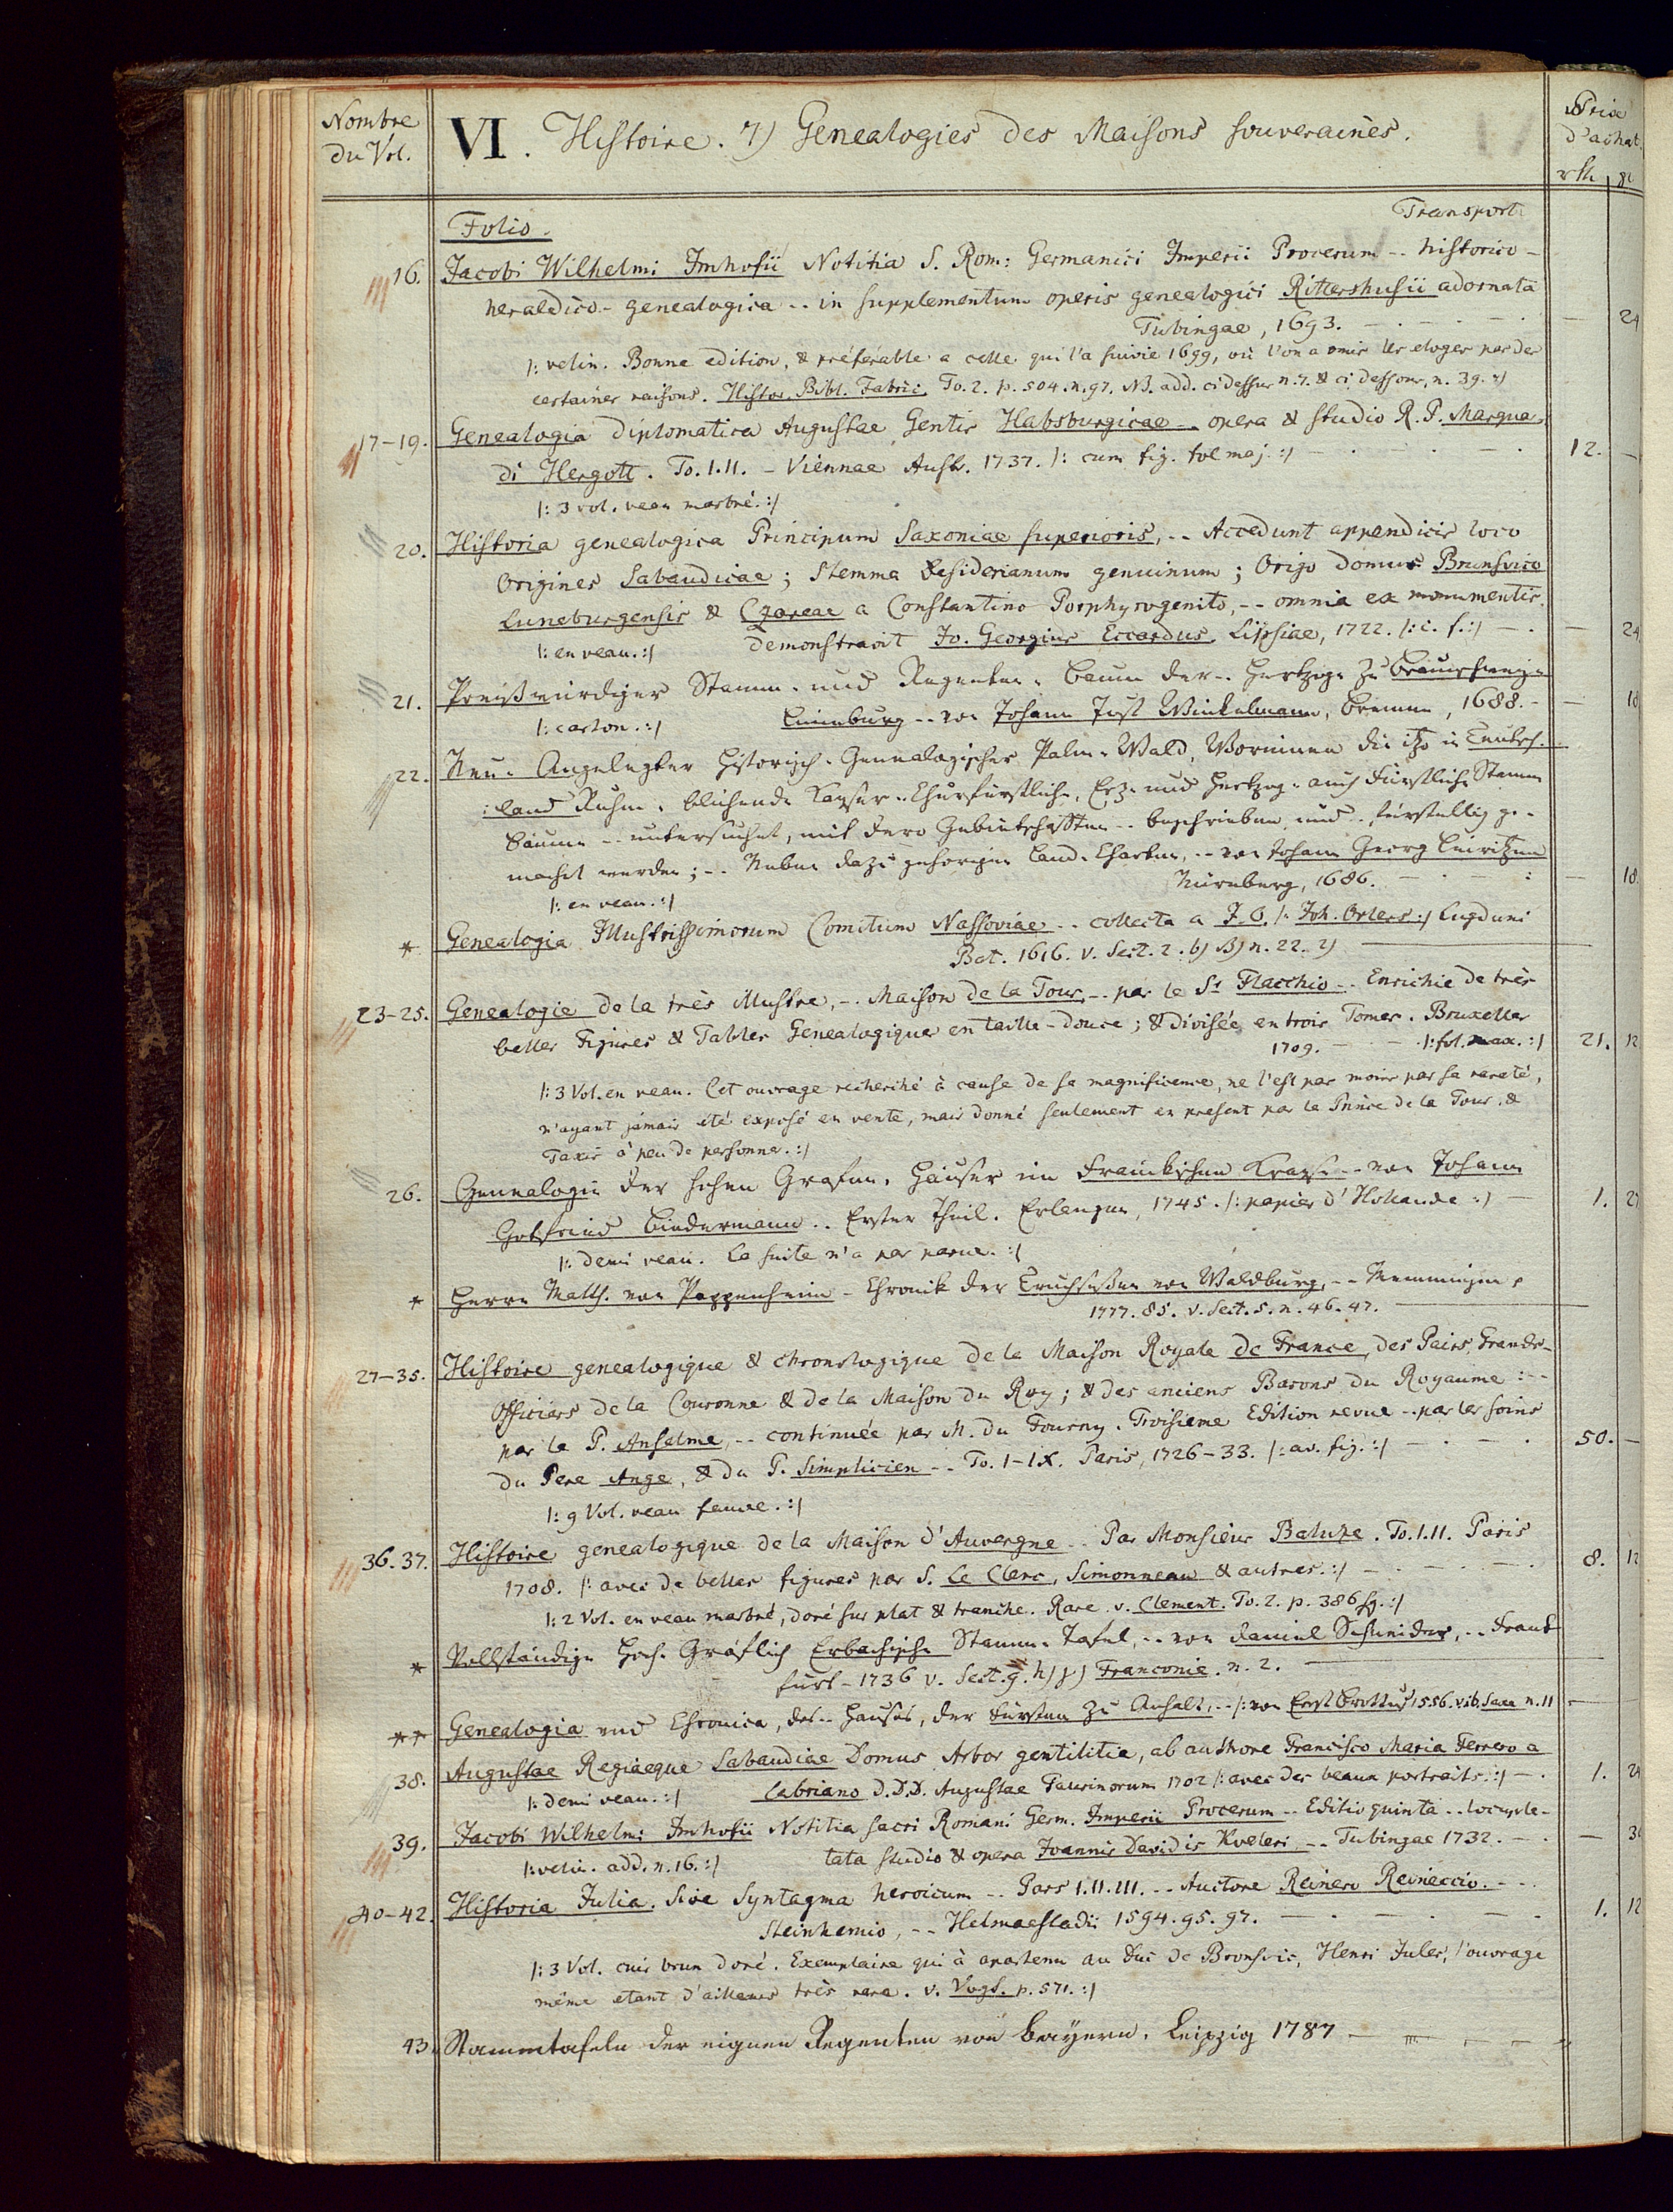 Nombre
du Vol.
VI. Histoire. 7) Genealogies des Maisons souveraines.
Prix
d'achat.
rth gl
Folio.
Transport
16. Jacobi Wilhelmi Imhofii Notitia S. Rom: Germanici Imperii Procerum -- historico-
heraldico-genealogica -- in supplementum operis genealogici Rittershusii adornata
Tubingae, 1693. — 24
|: velin. Bonne edition, & préférable a celle qui l'a suivie 1699, où l'on a omis les eloges par des
certaines raisons. Histor. Bibl. Fabric. To. 2. p. 504. n. 97. NB. add. ci dessus n. 7. & ci dessous, n. 39. :|
17-19. Genealogia diplomatica Augustae Gentis Habsburgicae -- opera & studio R. P. Marqua
di Hergott. To. I. II. - Viennae Austr. 1737. |: cum fig. fol maj. :| 12. —
|: 3 vol. veau marbré. :|
20. Historia genealogica Principum Saxoniae superioris, -- Accedunt appendicis loco
Origines Sabaudicae; Stemma Desiderianum genuinum; Origo domus Brunsvico
Luneburgensis & Czareae a Constantino Porphyrogenito, -- omnia ex monumentis
|: en veau. :| demonstravit Jo. Georgius Eccardus. Lipsiae, 1722. |: c. f. :| — 24
21. Preißwürdiger Stamm- und Regenten-Baum der -- Hertzoge zu Braunschweig-
|: carton. :| Lüneburg -- von Johann Just Winkelmann, Bremen, 1688. — 18
22. Neu-Angelegter Historisch-Genealogischer Palm-Wald, Worinnen die itzo in Teutsch-
:land Ruhm-blühende Kayser- Churfürstliche, Erz- und Hertzog- auch Fürstliche Stamm
Bäume -- untersuchet, mit dero Gebietschafften -- beschrieben und -- fürstellig ge-
macht werden; -- Neben dazu gehörigen Land-Charten, -- von Johann Georg Leiritzen
|: en veau. :| Nürnberg, 1686. — 18.
* Genealogia Illustrissimorum Comitum Nassoviae -- collecta a J. O. |: Joh. Orlers :| Lugduni
Bat. 1616. v. Sect. 2. b) B) n. 22. 2)
23-25. Genealogie de la très illustre, -- Maison de la Tour -- par le Sr Flacchio -- Enrichie de très
belles Figures & Tables Genealogique en taille-douce; & divisée en trois Tomes. Bruxelles
1709. |: fol. max. :| 21. 12
|: 3 Vol. en veau. Cet ouvrage recherché à cause de sa magnificence, ne l'est pas moins par sa rareté,
n'ayant jamais été exposé en vente, mais donné seulement en present par le Prince de la Tour &
Taxis à peu de personne. :|
26. Genealogie der hohen Grafen-Häuser im Fränckischen Crayse -- von Johann
Gottfried Biedermann -- Erster Theil. Erlangen, 1745. |: papier d'Hollande :| 1. 24
|: demi veau. La suite n'a pas parue. :|
* Herrn Matth. von Pappenheim - Chronik der Truchseßen von Waldburg, -- Memmingen
1777. 85. v. Sect. 5. n. 46. 47.
27-35. Histoire genealogique & chronologique de la Maison Royale de France, des Pairs, Grands-
Officiers de la Couronne & de la Maison du Roy; & des anciens Barons du Royaume: --
par le P. Anselme, -- continuée par M. du Fourny. Troisieme Edition revue -- par les soins
du Pere Ange, & du P. Simplicien -- To. I-IX. Paris, 1726-33. |: av. fig. :| 50. —
|: 9 Vol. veau fauve. :|
36. 37. Histoire genealogique de la Maison d'Auvergne -- Par Monsieur Baluze. To. I. II. Paris
1708. |: avec de belles figures par S. Le Clerc, Simonneau & autres. :| 8. 12
|: 2 Vol. en veau marbré, doré sur plat & tranche. Rare. v. Clement. To. 2. p. 386 sq. :|
* Vollständige Hoch-Gräflich Erbachische Stamm-Tafel, -- von Daniel Schneider, -- Frank
furt - 1736 v. Sect. 9. h) γ) Franconie. n. 2.
** Genealogia und Chronica, des -- Hauses, der Fürsten zu Anhalt, -- |: von Ernst Brottuf 1556. v. ib. Saxe n. 11
38. Augustae Regiaeque Sabaudiae Domus Arbor gentilitia, ab authore Francisco Maria Ferrero a
|: demi veau. :| Labriano D.D.D. Augustae Taurinorum 1702 |: avec des beaux portraits. :| 1. 24
39. Jacobi Wilhelmi Imhofii Notitia sacri Romani Germ. Imperii Procerum -- Editio quinta -- locuple-
|: velin. add. n. 16. :| tata studio & opera Joannis Davidis Koeleri -- Tubingae 1732. — 36
40-42. Historia Julia. Sive Syntagma heroicum -- Pars I. II. III. -- Auctore Reinero Reineccio. -
Steinhemio, -- Helmaestadii 1594. 95. 97. 1. 12
|: 3 Vol. cuir brun doré. Exemplaire qui à apartenu au Duc de Bronsvic, Henri Jules, l'ouvrage
même etant d'ailleurs très rare. v. Vogt. p. 571. :|
43. Stammtafeln der eignen Regenten von Bayern. Leipzig 1787